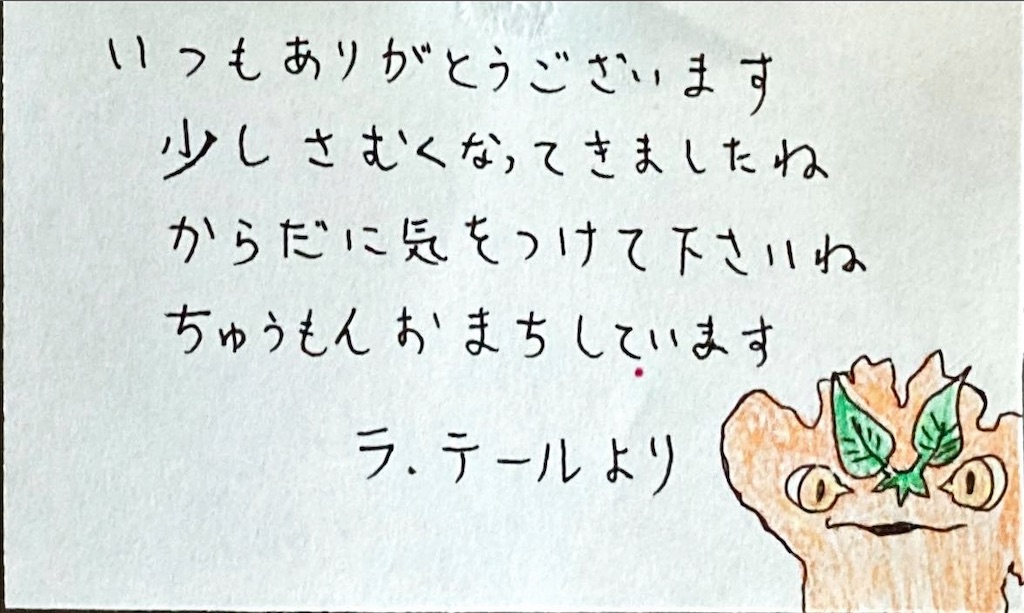 いつもありがとうございます
少しさむくなってきましたね
からだに気をつけて下さいね
ちゅうもんおまちしています
ラ.テールより